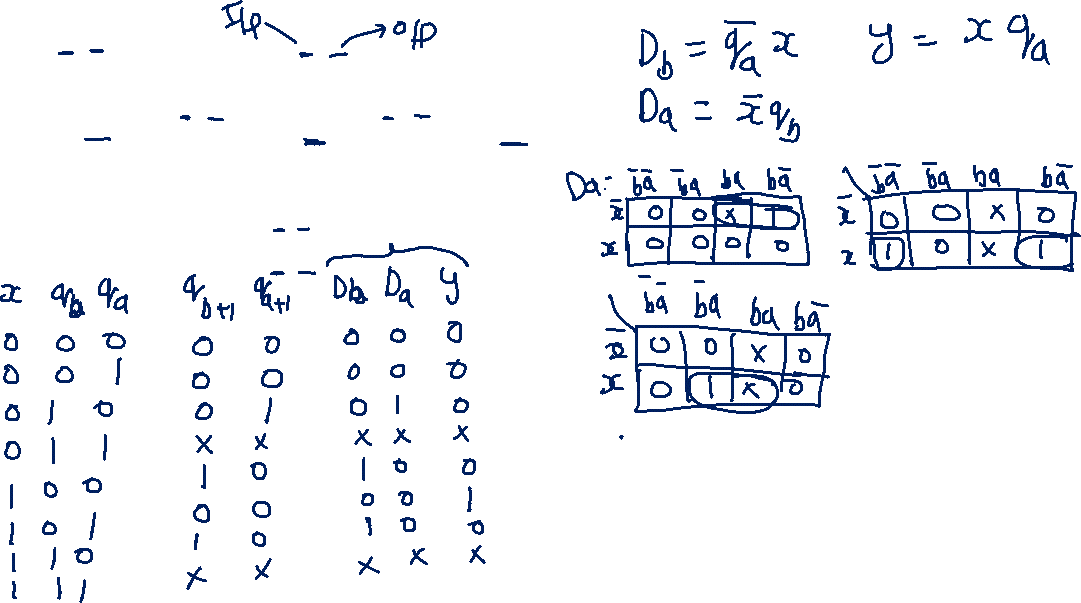 I/p → o/p
D_b = q̅_a x
y = x q_a
D_a = x̅ q_b
x q_b q_a q_{b+1} q_{a+1} D_b D_a y
0 0 0 0 0 0 0 0
0 0 1 0 0 0 0 0
0 1 0 0 1 0 1 0
0 1 1 x x x x x
1 0 0 1 0 1 0 0
1 0 1 0 0 0 0 1
1 1 0 1 0 1 0 0
1 1 1 x x x x x
Da:- b̅a̅ b̅a ba ba̅
x̅ 0 0 x 1
x 0 0 0 0
b̅a̅ b̅a ba ba̅
x̅ 0 0 x 0
x 1 0 x 1
b̅a̅ b̅a ba ba̅
x̅ 0 0 x 0
x 0 1 x 0